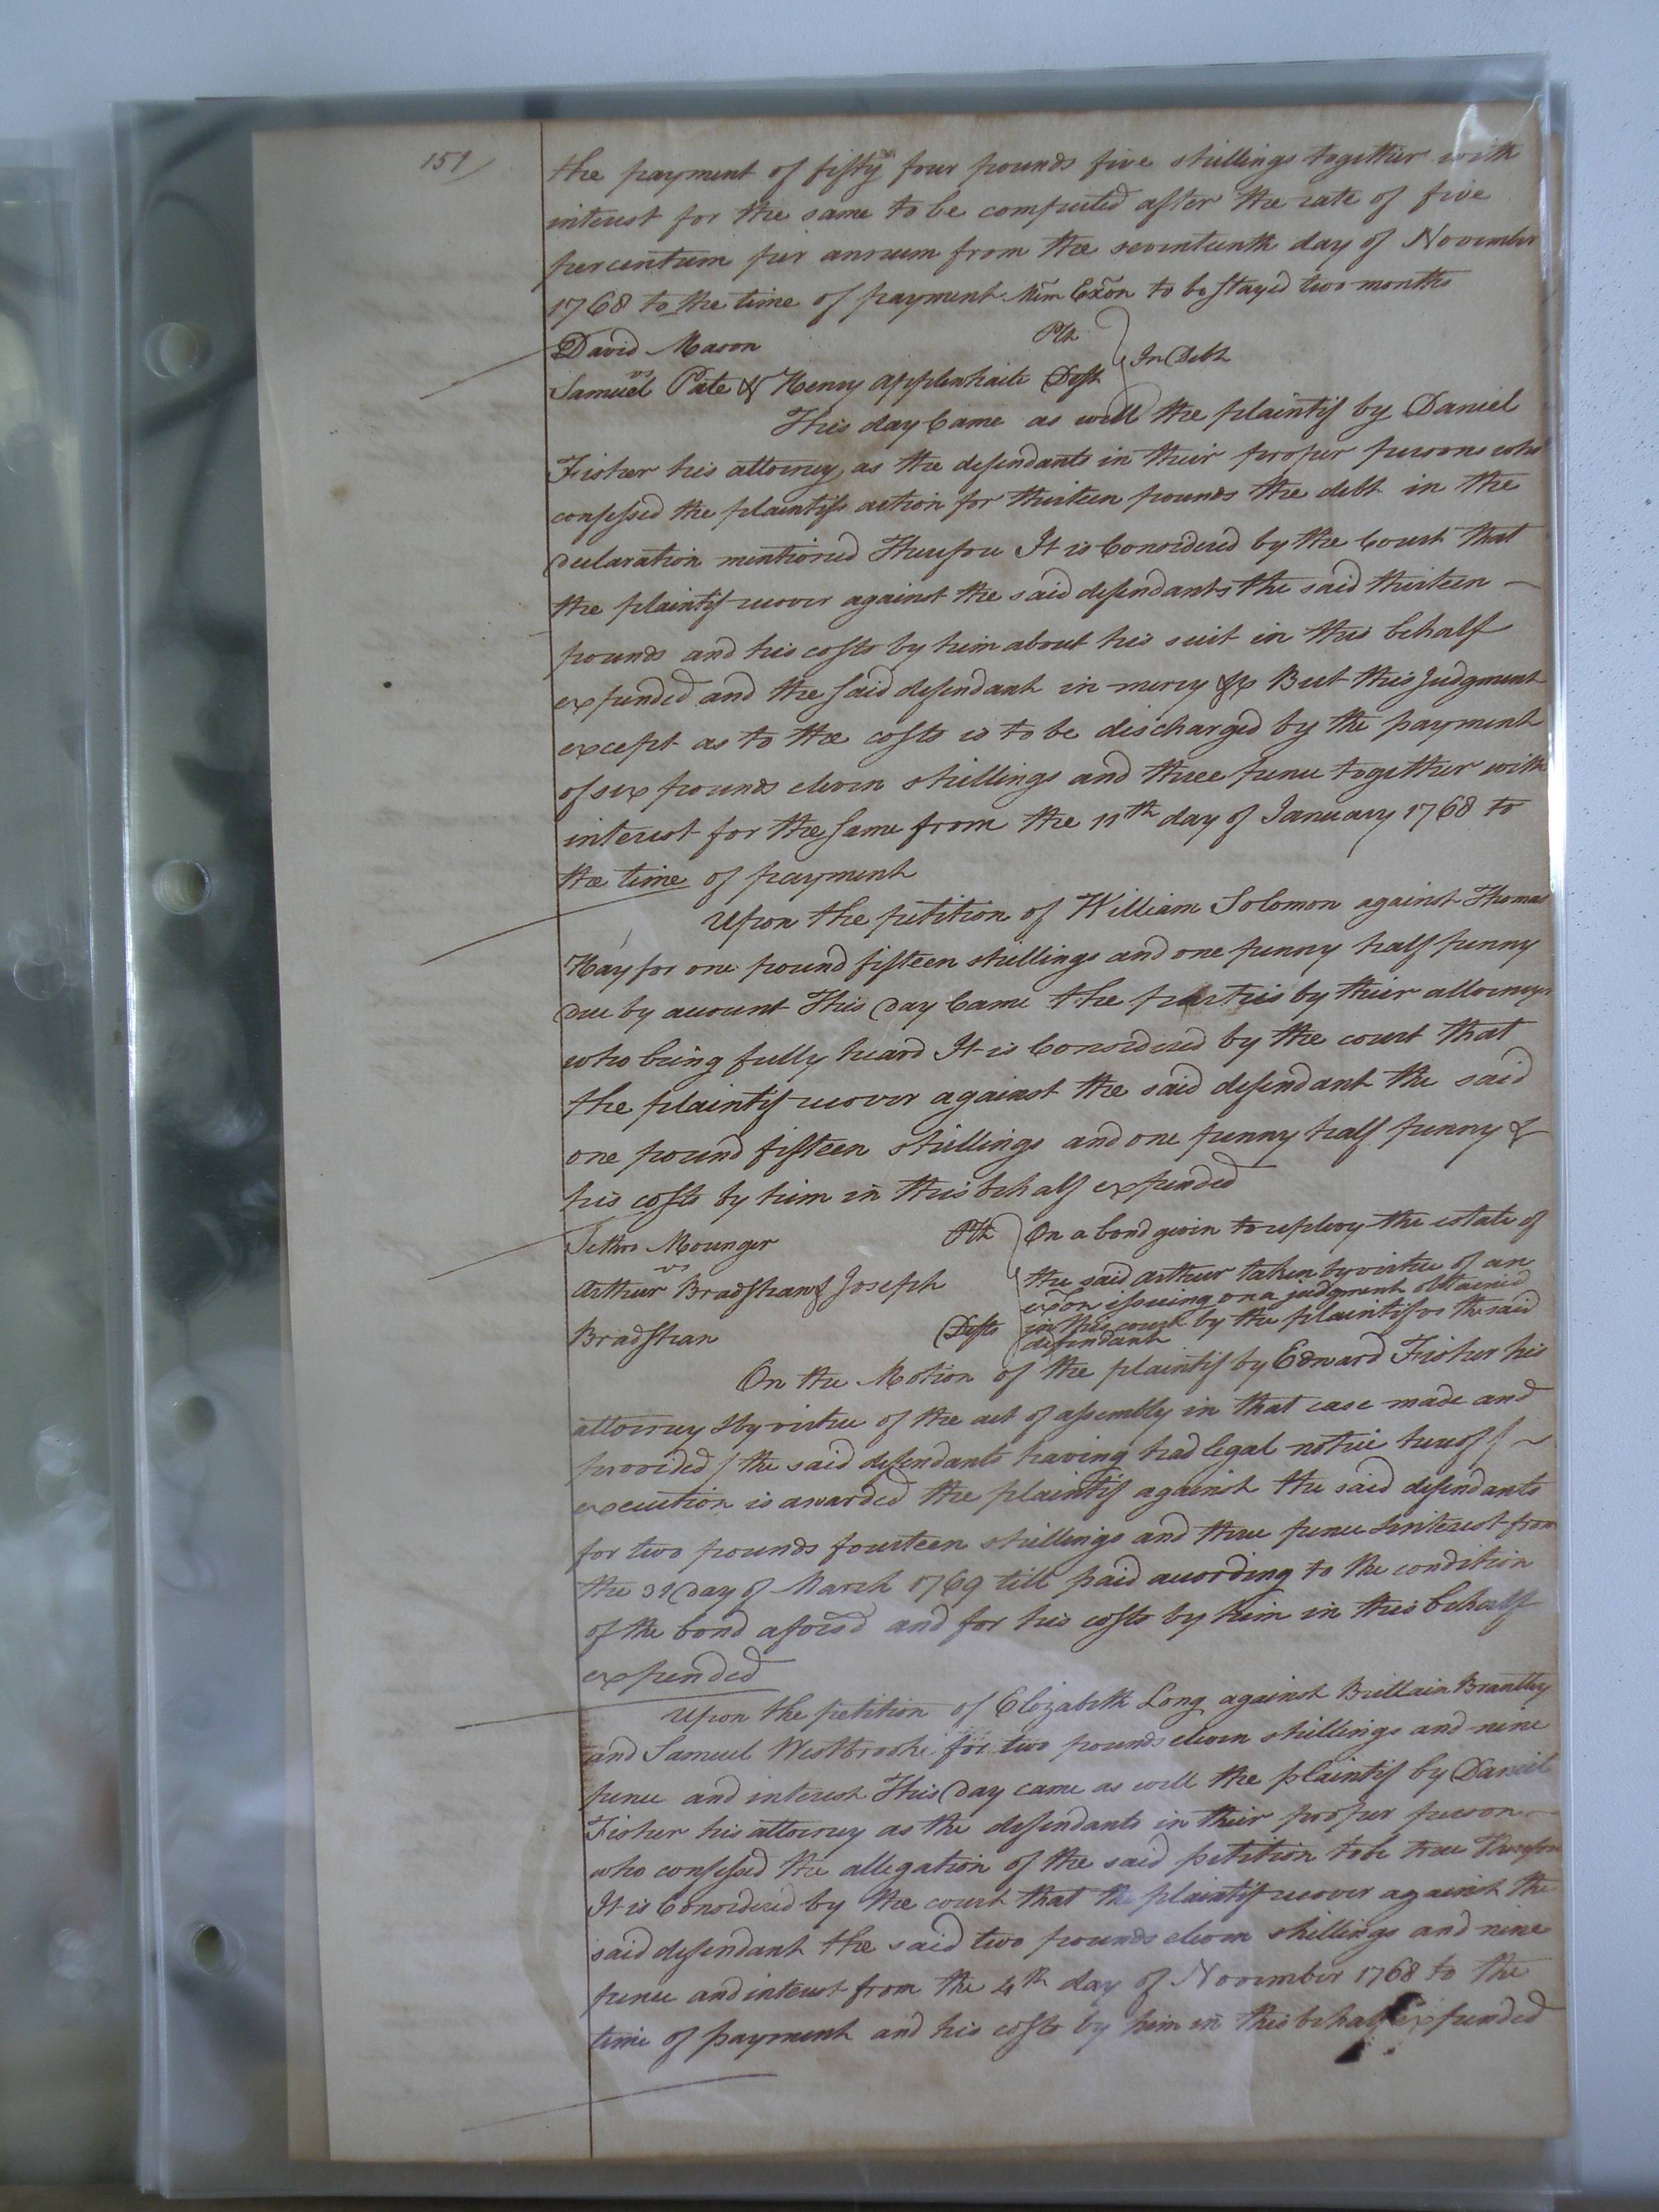 151
the payment of fifty four pounds five shillings together with
interest for the same to be computed after the rate of five
percentum per annum from the seventeenth day of November
1768 to the time of payment. Mem Exõn to be stayed two months
David Mason Plt
vs } In Debt
Samuel Pate & Henry Applewhaite Deft
This day Came as well the plaintif by Daniel
Fisher his attorney, as the defendants in their proper persons who
confessed the plaintifs action for thirteen pounds the debt in the
declaration mentioned Therefore It is Considered by the Court that
the plaintif recover against the said defendants the said thirteen
pounds and his costs by him about his suit in this behalf
expended and the said defendant in mercy &c But this Judgment
except as to the costs is to be discharged by the payment
of six pounds eleven shillings and three pence together with
interest for the same from the 11th day of January 1768 to
the time of payment
Upon the petition of William Solomon against Thomas
Hay for one pound fifteen shillings and one penny half penny
due by account This day Came the parties by their attorneys
who being fully heard It is Considered by the court that
the plaintif recover against the said defendant the said
one pound fifteen shillings and one penny half penny &
his costs by him in this behalf expended
Jethro Mounger Plt } On a bond given to replevy the estate of
vs the said Arthur taken by virtue of an
Arthur Bradshaw & Joseph exõn issuing on a judgment obtained
in this court by the plaintif vs the said
Bradshaw Defts defendant
On the Motion of the plaintif by Edward Fisher his
attorney & by virtue of the act of assembly in that case made and
provided / the said defendants having had legal notice hereof /
execution is awarded the plaintif against the said defendants
for two pounds fourteen shillings and three pence & interest from
the 31 day of March 1769 till paid according to the condition
of the bond aforesd and for his costs by him in this behalf
expended
Upon the petition of Elizabeth Long against Brittain Brantley
and Samuel Westbrooke for two pounds eleven shillings and nine
pence and interest This day came as well the plaintif by Daniel
Fisher his attorney as the defendants in their proper person
who confessed the allegation of the said petition to be true Therefore
It is Considered by the court that the plaintif recover against the
said defendant the said two pounds eleven shillings and nine
pence and interest from the 4th day of November 1768 to the
time of payment and his costs by him in this behalf expended